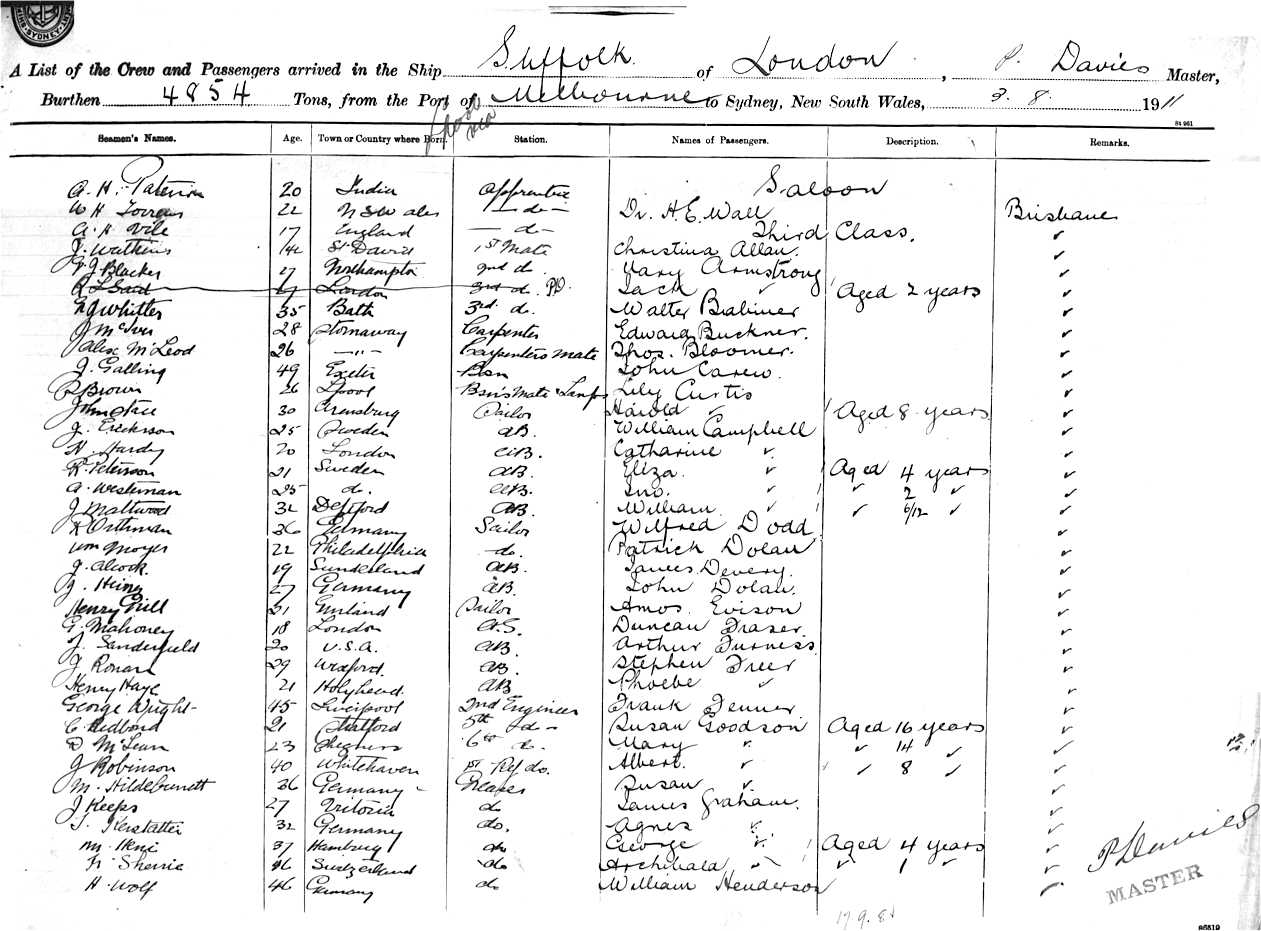 SYDNEY
A List of the Crew and Passengers arrived in the Ship Suffolk of London, P. Davies Master,
Burthen 4854 Tons, from the Port of Melbourne to Sydney, New South Wales, 3. 8. 1911
via
84 961
Seamen's Names. Age. Town or Country where Born. Station. Names of Passengers. Description. Remarks.
A. H. Paterson 20 India Apprentice Saloon
W H Torrens 22 N S Wales — do — Dr. H. E. Wall Brisbane
A. H Vile 17 England — do — Third Class. ✓
J. Watkins St Davids 1st Mate Christina Allan. ✓
J Blacker 27 Northampton 2nd do. Mary Armstrong ✓
London 3rd d. PD. Jack ✓ Aged 2 years ✓
Whitter 35 Bath 3rd. do. Walter Balmer ✓
J McIver 28 Stornaway Carpenter Edward Buckner. ✓
Alex McLeod 26 —"— Carpenters mate Thos. Bloomer. ✓
J. Galling 49 Exeter Bsn John Carew. ✓
Brown 26 L'pool Bsn's Mate & Lamps Lily Curtis ✓
30 Arensburg Sailor Harold ✓ Aged 8 years ✓
J. Erickson 25 Sweden AB. William Campbell ✓
H. Hardy 20 London AB. Catharine ✓ ✓
Peterson 21 Sweden AB. Eliza. ✓ Aged 4 years ✓
A. Westerman 25 do. AB. Jno. ✓ ✓ 2 ✓ ✓
J Maltwood 32 Deptford AB. William ✓ ✓ 6/12 ✓ ✓
Orthman 36 Germany Sailor Wilfred Dodd ✓
Wm Moyes 22 Philadelphia do. Patrick Dolan ✓
J. Alcock. 19 Sunderland AB. James Devery. ✓
J. Heine 27 Germany AB. John Dolan. ✓
Henry 21 Sailor Amos. Evison ✓
G. Mahoney 18 London O.S. Duncan Fraser. ✓
J. Sanderfield 20 U.S.A. AB. Arthur Furness. ✓
J Ronan 29 Wexford. AB. Stephen Freer ✓
Henry Haye 21 Holyhead. AB Phoebe ✓ ✓
George Wright 45 Liverpool 2nd Engineer Frank Fenner ✓
C Redbond 21 Stratford 5th do — Susan Goodson Aged 16 years ✓
D McLean 23 6th do. Mary ✓ ✓ 14 ✓ ✓
J Robinson 40 Whitehaven 1st Ref do. Albert. ✓ ✓ 8 ✓ ✓
M. Hildebrandt 36 Germany Greaser Susan ✓ ✓
J Keeps 27 Victoria do James Graham. ✓
J. Kerstatter 32 Germany do. Agnes ✓ ✓
37 Hamburg do George ✓ Aged 4 years ✓
Sherrie Switzerland do Archibald ✓ ✓ 1 ✓ ✓
H. Wolf 46 Germany do William Henderson ✓
P Davies
MASTER
86519